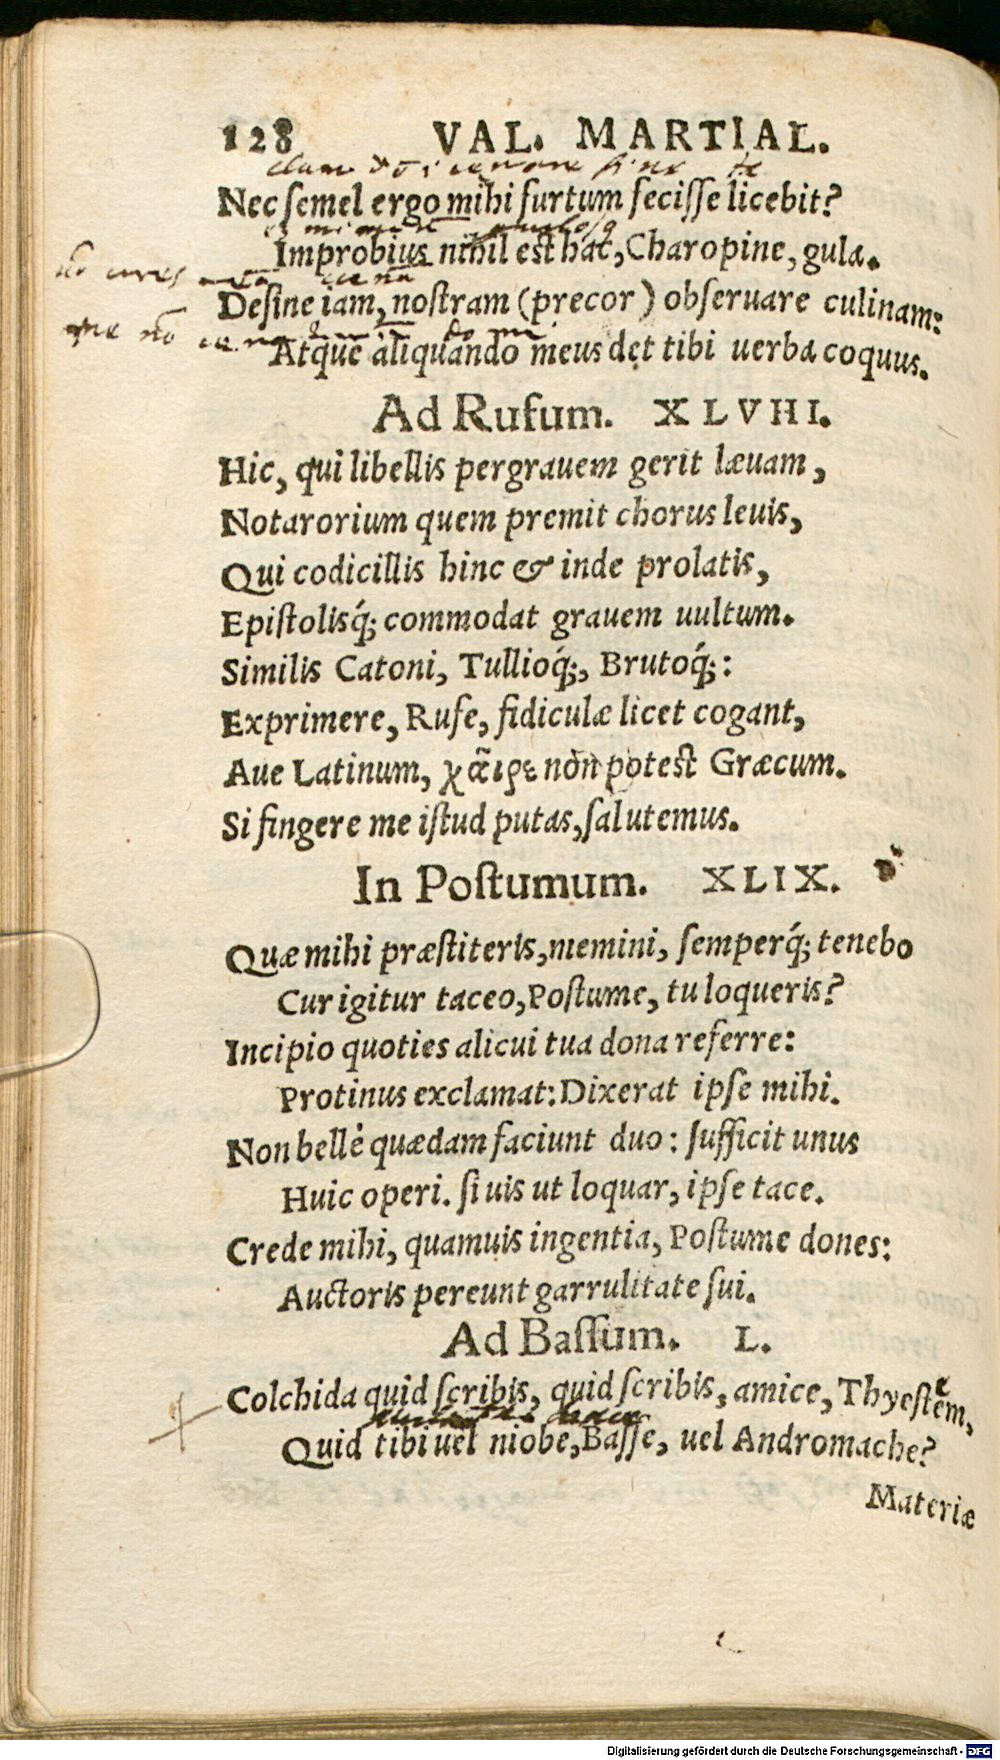 128 VAL. MARTIAL.
Nec semel ergo mihi furtum fecisse licebit?
Improbius nihil est hac, Charopine, gula.
Desine iam, nostram (precor) obseruare culinam:
Atque aliquando meus det tibi uerba coquus.
Ad Rufum. XLVHI.
Hic, qui libellis pergrauem gerit læuam,
Notarorium quem premit chorus leuis,
Qui codicillis hinc & inde prolatis,
Epistolisq́; commodat grauem uultum.
Similis Catoni, Tullioq́;, Brutoq́;:
Exprimere, Rufe, fidiculæ licet cogant,
Aue Latinum, χᾶιρε non potest Græcum.
Si fingere me istud putas, salutemus.
In Postumum. XLIX.
Quæ mihi præstiteris, memini, semperq́; tenebo
Cur igitur taceo, Postume, tu loqueris?
Incipio quoties alicui tua dona referre:
Protinus exclamat: Dixerat ipse mihi.
Non bellè quædam faciunt duo: sufficit unus
Huic operi. si uis ut loquar, ipse tace.
Crede mihi, quamuis ingentia, Postume dones:
Auctoris pereunt garrulitate sui.
Ad Bassum. L.
Colchida quid scribis, quid scribis, amice, Thyestem,
Quid tibi uel niobe, Basse, uel Andromache?
Materiæ
Digitalisierung gefördert durch die Deutsche Forschungsgemeinschaft - DFG